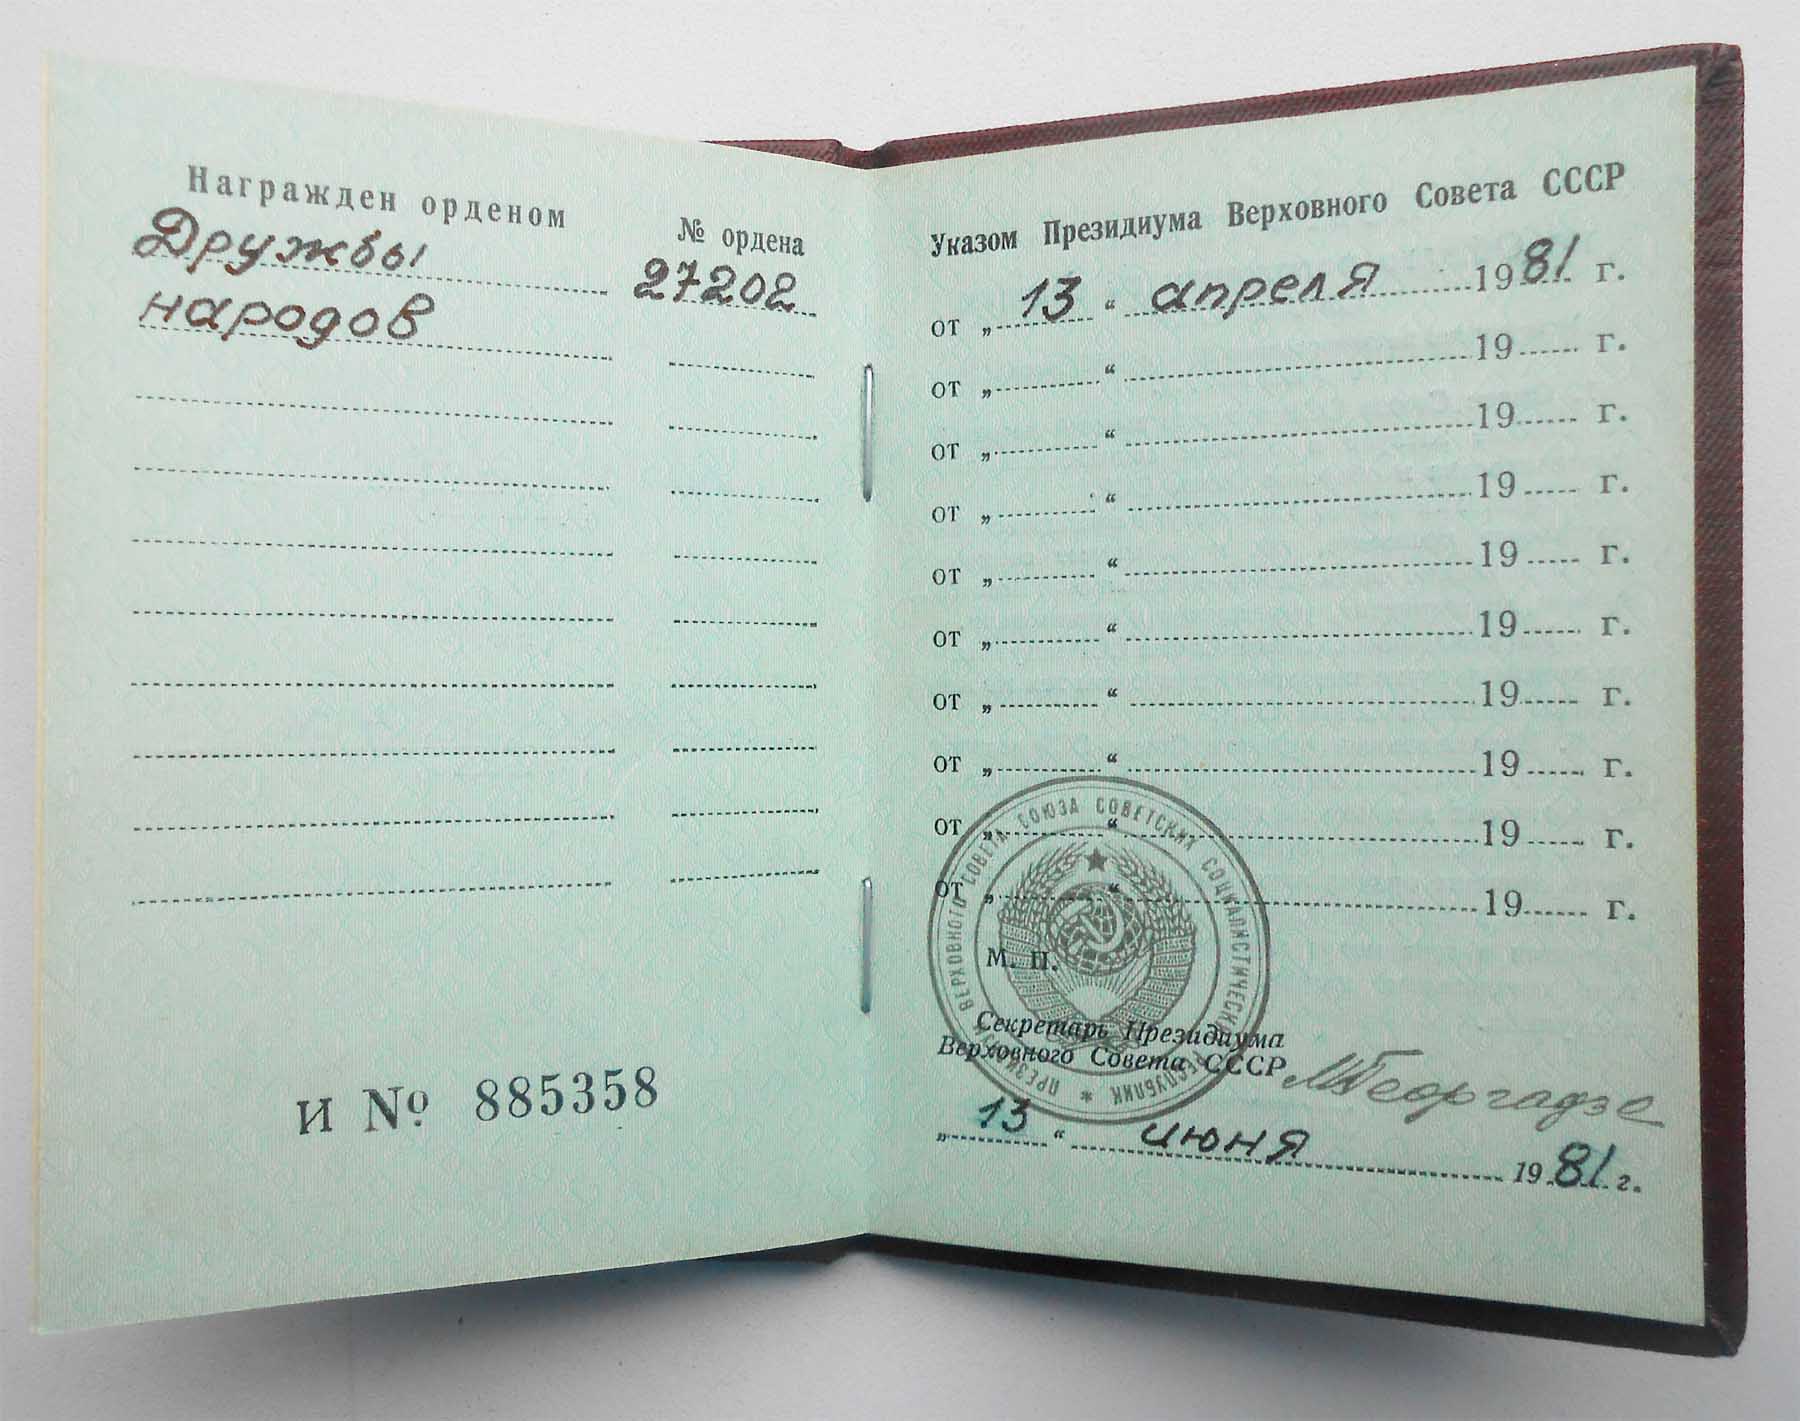 Награжден орденом
№ ордена
Дружбы
27202
народов
И № 885358
Указом Президиума Верховного Совета СССР
от „ 13 “ апреля 1981 г.
от „ “ 19 г.
от „ “ 19 г.
от „ “ 19 г.
от „ “ 19 г.
от „ “ 19 г.
от „ “ 19 г.
от „ “ 19 г.
от „ “ 19 г.
от „ “ 19 г.
М. П.
ПРЕЗИДИУМ ВЕРХОВНОГО СОВЕТА СОЮЗА СОВЕТСКИХ СОЦИАЛИСТИЧЕСКИХ РЕСПУБЛИК *
Секретарь Президиума
Верховного Совета СССР
МГеоргадзе
„ 13 “ июня 1981 г.